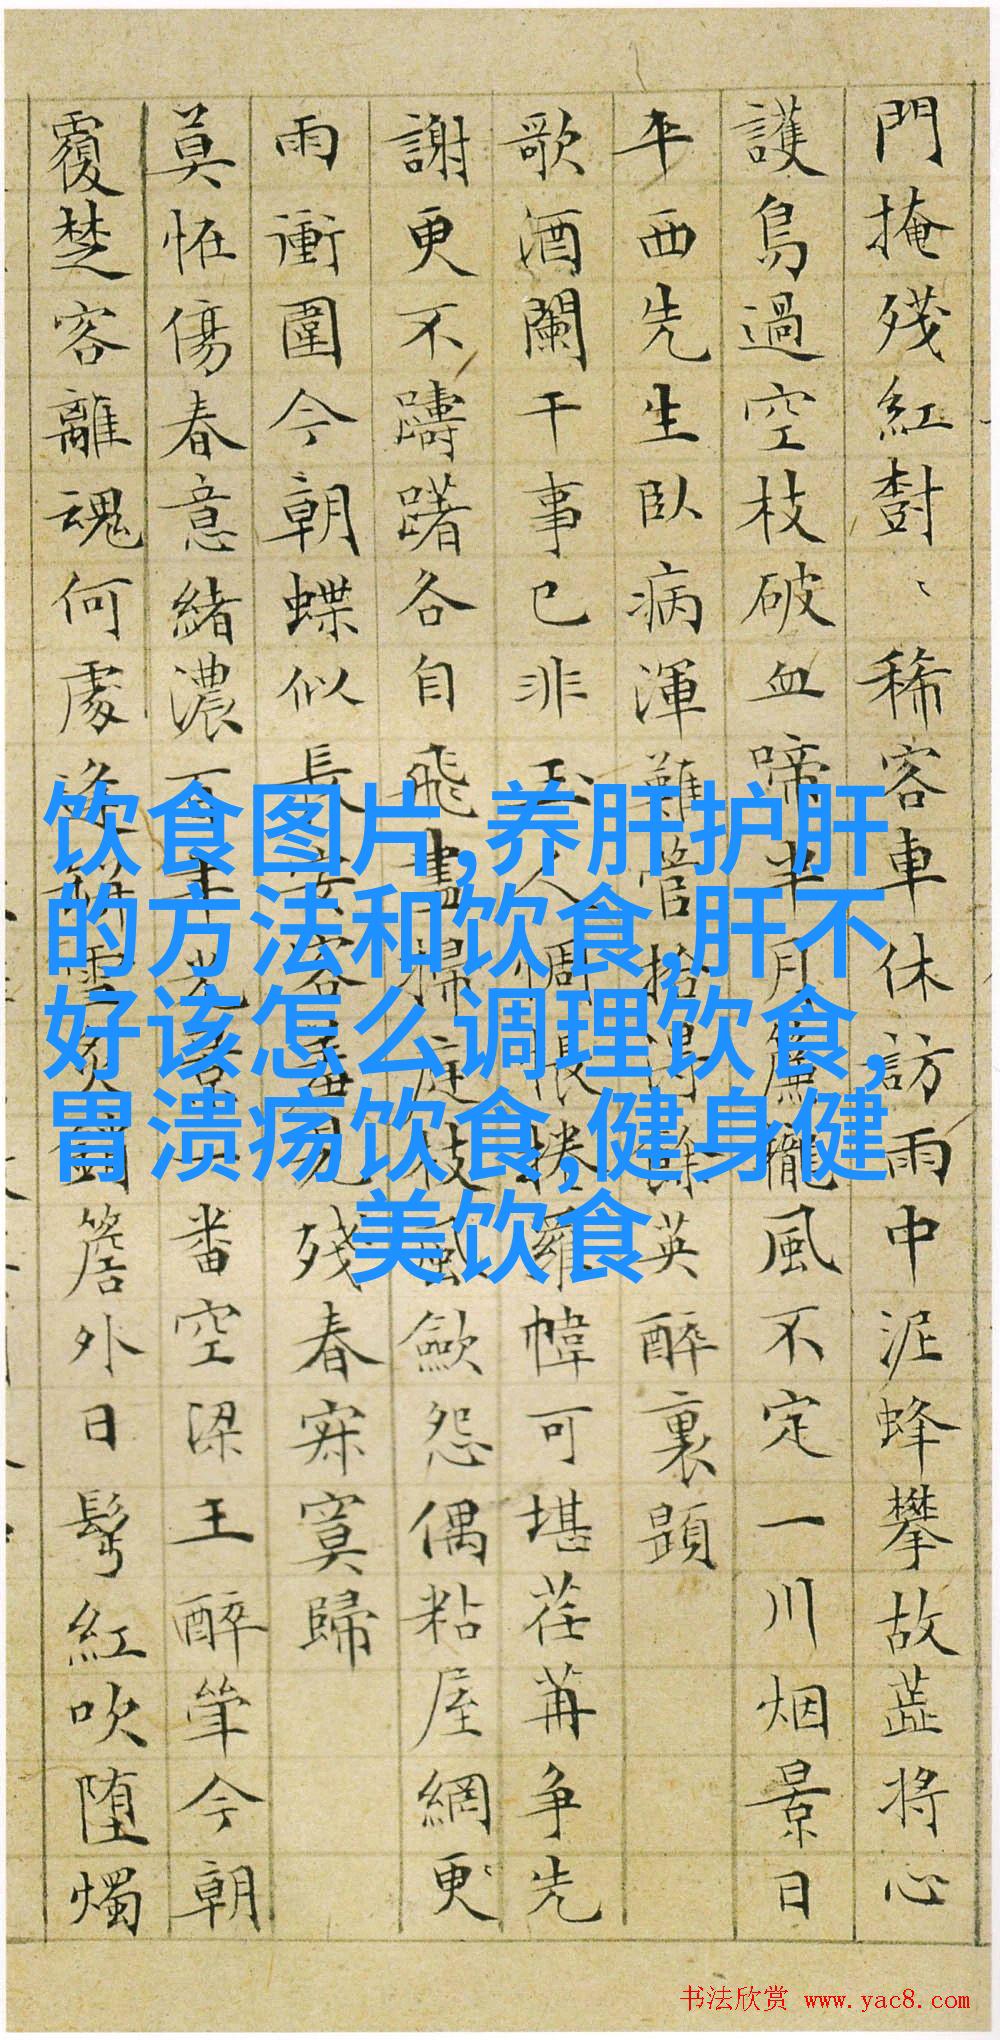 門掩殘紅樹〻稀客車休訪雨中泥蜂攀故蕋將心
護鳥過空枝破血啼半月簾櫳風不定一川烟景日
平西先生臥病渾難管拾得餘英醉裏題
歌酒闌干事已非玉人惆悵捲羅幃可堪荏苒爭先
謝更不躊躇各自飛盡掃庭枝風歛怨偶粘屋網更
雨衝圍今朝蝶似長安客殘春寂寞歸
莫怪傷春意緒濃百年光景一番空梁王醉筆今朝
覆楚客離魂何處逢簷外日髩紅吹墮燭
饮食图片,养肝护肝
的方法和饮食,肝不
好该怎么调理饮食,
胃溃疡饮食,健身健
美饮食
书法欣赏 www.yac8.com